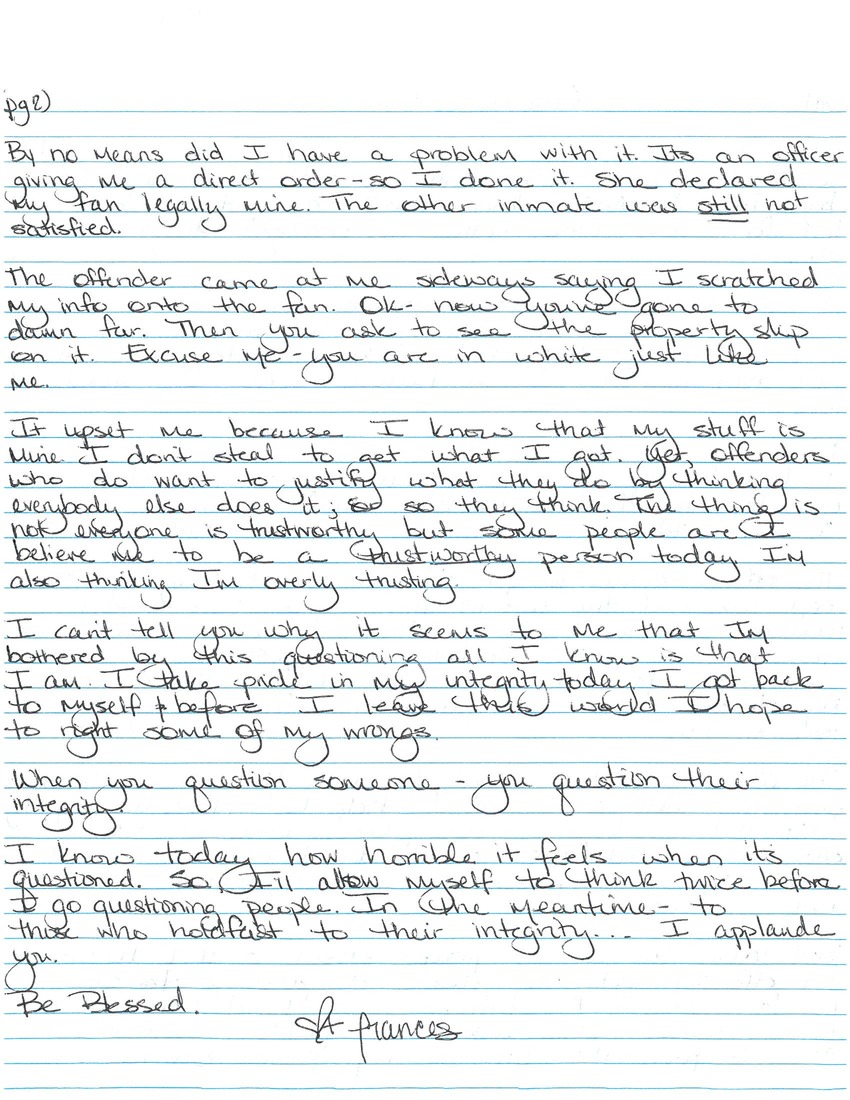 pg 2)
By no means did I have a problem with it. Its an officer
giving me a direct order-so I done it. She declared
my fan legally mine. The other inmate was still not
satisfied.
The offender came at me sideways saying I scratched
my info onto the fan. Ok- now youve gone to
damn far. Then you ask to see the property slip
on it. Excuse me - you are in white just like
me.
It upset me because I know that my stuff is
mine. I don't steal to get what I got. Yet, offenders
who do want to justify what they do by thinking
everybody else does it; so they think. The thing is
not everyone is trustworthy but some people are I
believe me to be a trustworthy person today Im
also thinking Im overly trusting.
I can't tell you why it seems to me that Im
bothered by this questioning all I know is that
I am. I take pride in my integrity today I got back
to myself & before I leave this world I hope
to right some of my wrongs.
When you question someone - you question their
integrity.
I know today how horrible it feels when its
questioned. So, I'll allow myself to think twice before
I go questioning people. In the meantime - to
those who holdfast to their integrity... I applaude
you.
Be Blessed.
frances